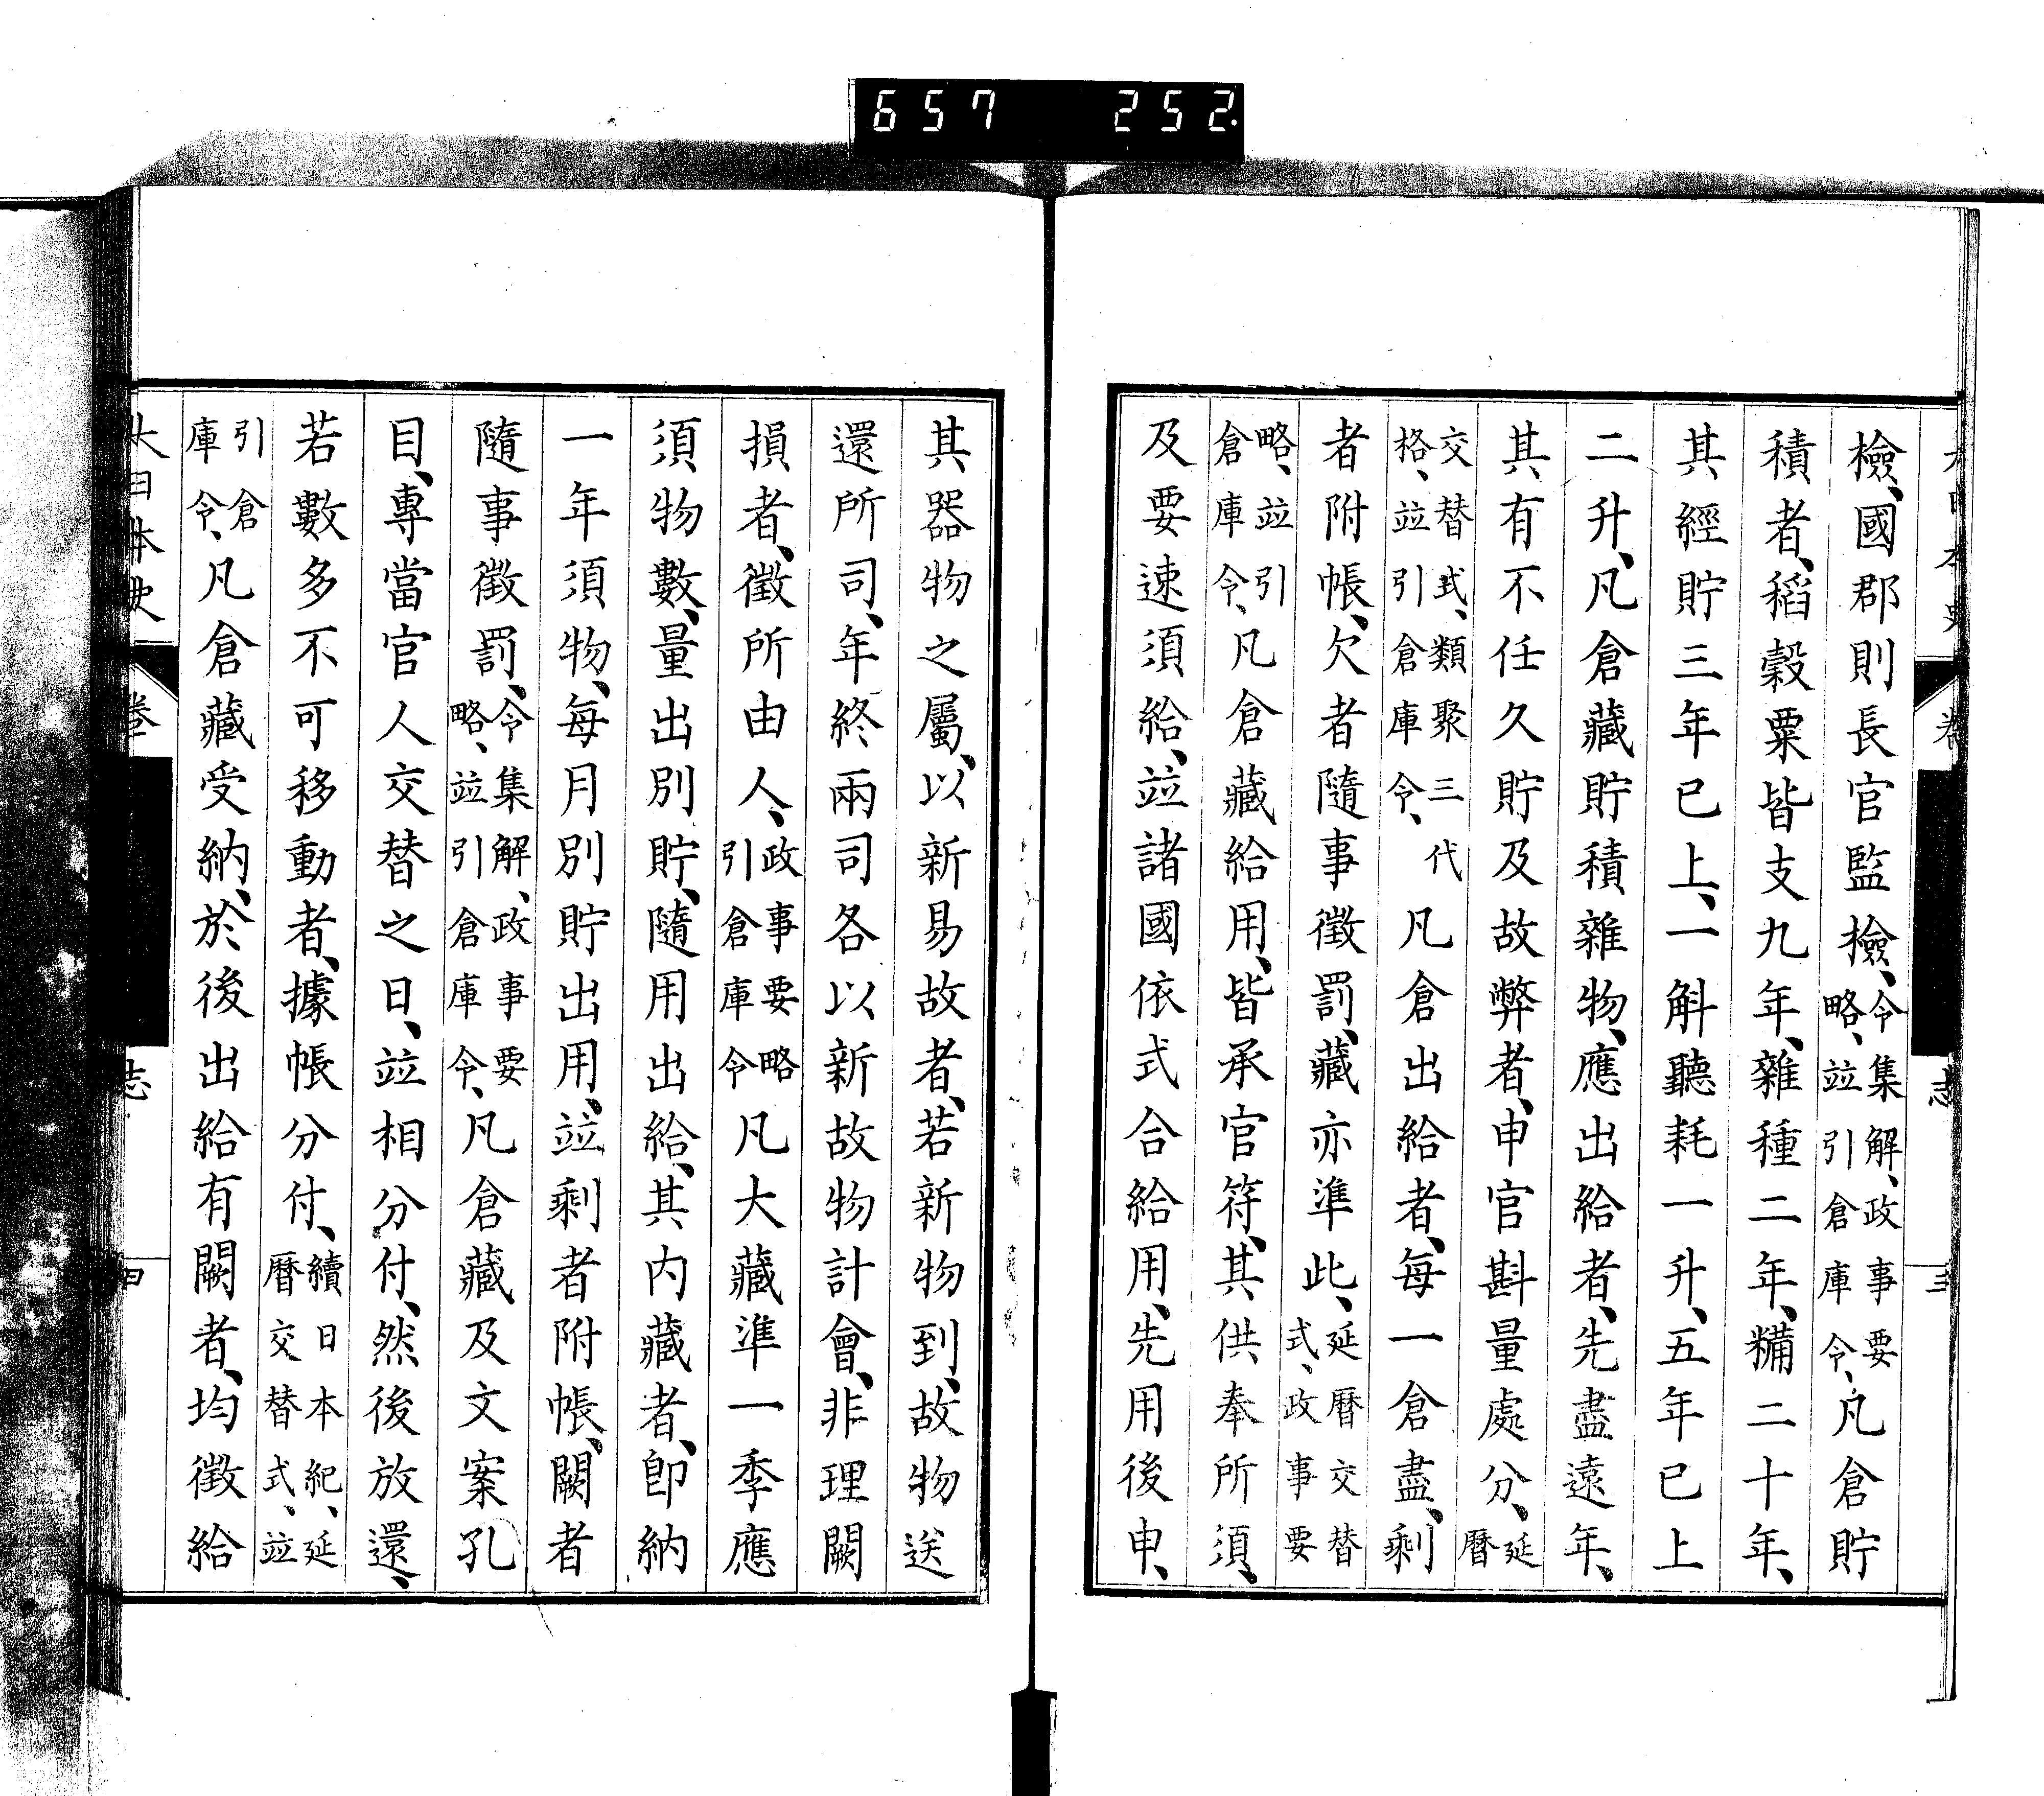 657 252.
檢、國郡則長官監檢、令集解、政事要略、竝引倉庫令、凡倉貯
積者、稻穀粟皆支九年、雜種二年、糒二十年、
其經貯三年已上、一斛聽耗一升、五年已上
二升、凡倉藏貯積雜物、應出給者、先盡遠年、
其有不任久貯及故弊者、申官斟量處分、延曆
交替式、類聚三代格、竝引倉庫令、凡倉出給者、每一倉盡、剩
者附帳、欠者隨事徵罰、藏亦準此、延曆交替式、政事要
略、竝引倉庫令、凡倉藏給用、皆承官符、其供奉所須、
及要速須給、竝諸國依式合給用、先用後申、
其器物之屬、以新易故者、若新物到、故物送
還所司、年終兩司各以新故物計會、非理闕
損者、徵所由人、政事要略引倉庫令凡大藏準一季應
須物數、量出別貯、隨用出給、其內藏者、卽納
一年須物、每月別貯出用、竝剩者附帳、闕者
隨事徵罰、令集解、政事要略、竝引倉庫令、凡倉藏及文案孔
目、專當官人交替之日、竝相分付、然後放還、
若數多不可移動者、據帳分付、續日本紀、延曆交替式、竝
引倉庫令、凡倉藏受納、於後出給有闕者、均徵給
大日本史 卷 志